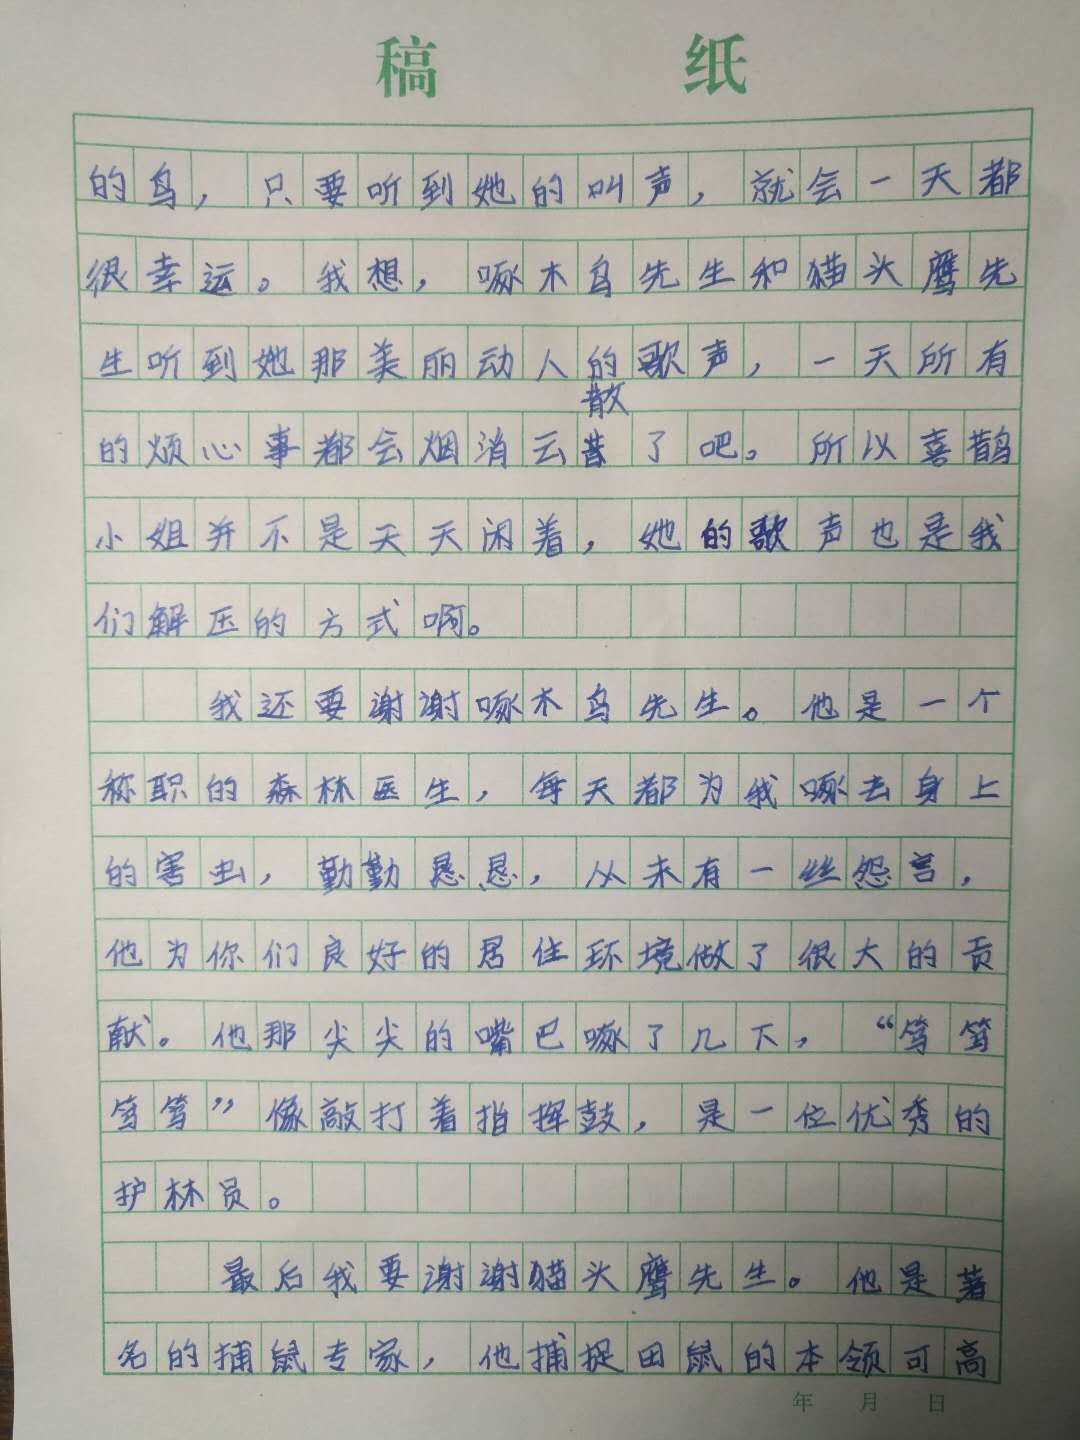 稿 纸
的鸟，只要听到她的叫声，就会一天都
很幸运。我想，啄木鸟先生和猫头鹰先
生听到她那美丽动人的歌声，一天所有
散
的烦心事都会烟消云昔了吧。所以喜鹊
小姐并不是天天闲着，她的歌声也是我
们解压的方式啊。
我还要谢谢啄木鸟先生。他是一个
称职的森林医生，每天都为我啄去身上
的害虫，勤勤恳恳，从未有一丝怨言，
他为你们良好的居住环境做了很大的贡
献。他那尖尖的嘴巴啄了几下，“笃笃
笃笃”像敲打着指挥鼓，是一位优秀的
护林员。
最后我要谢谢猫头鹰先生。他是著
名的捕鼠专家，他捕捉田鼠的本领可高
年 月 日